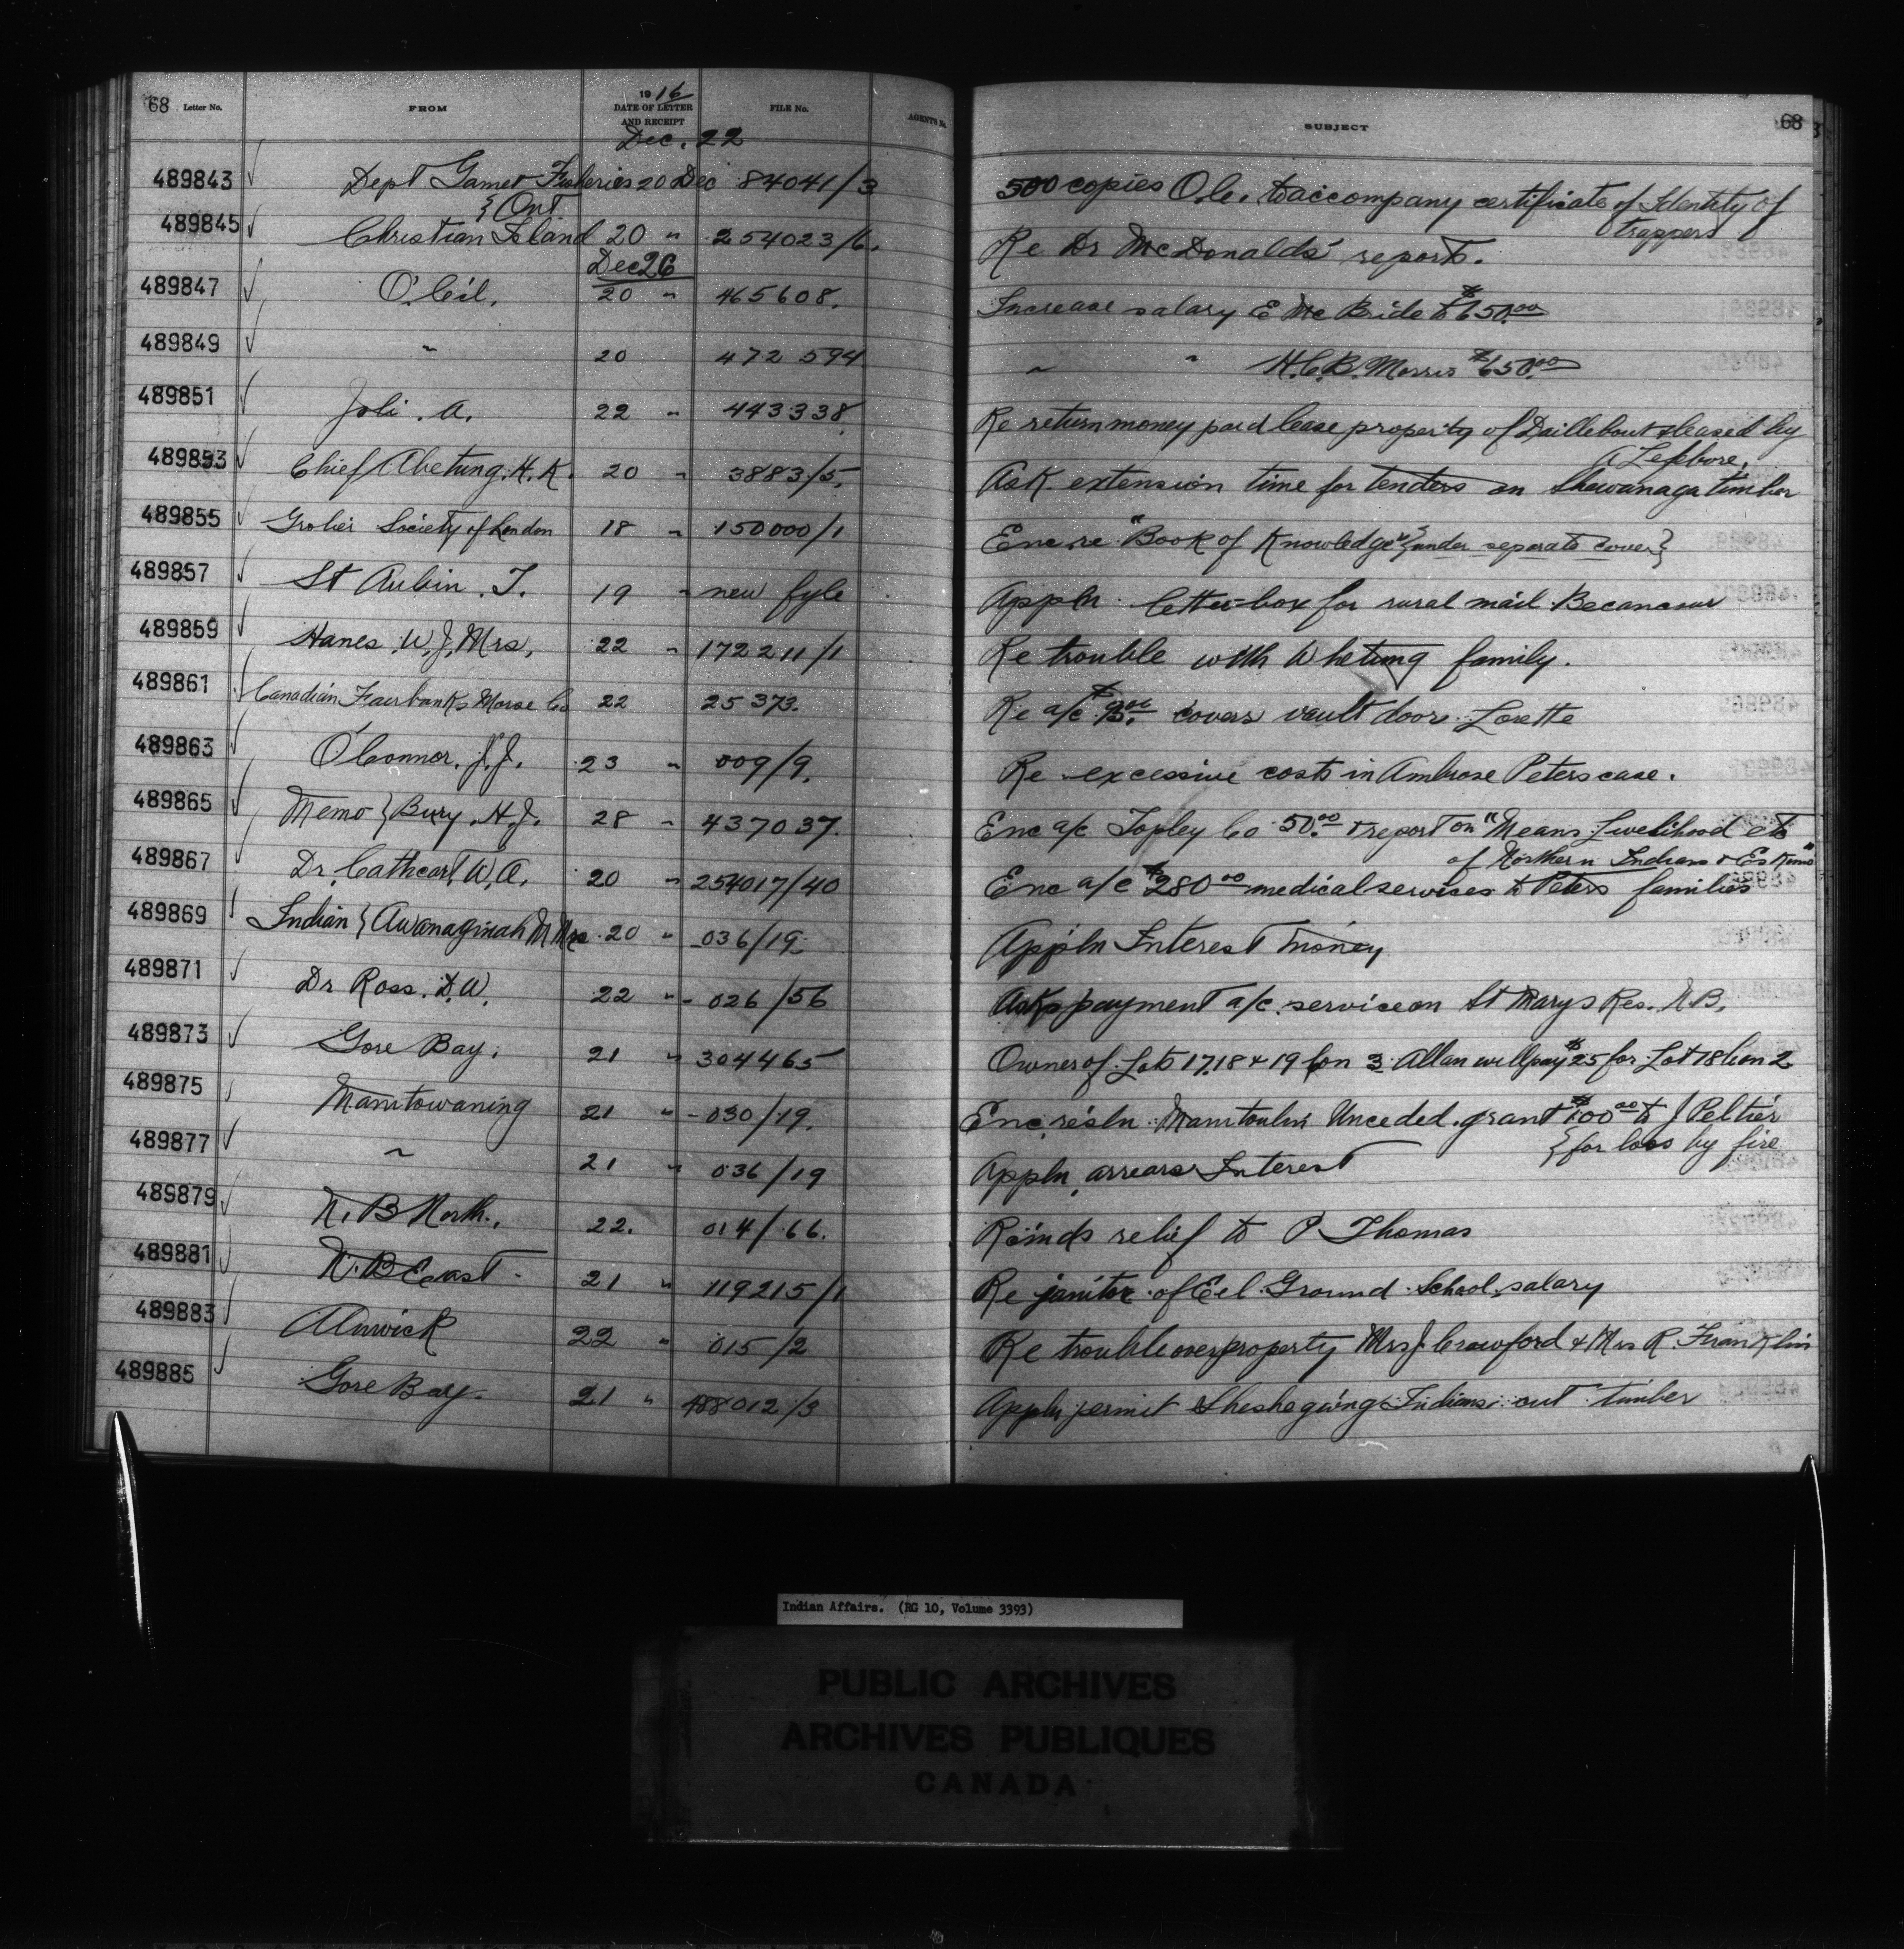 68 Letter No. FROM 1916 DATE OF LETTER AND RECEIPT FILE No. AGENTS No. SUBJECT 68
Dec. 22
489843 Dept Game & Fisheries 20 Dec 84041/3 500 copies O.C. to accompany certificate of Identity of
} Ont trappers
489845 Christian Island 20 " 254023/6. Re Dr McDonalds' report.
Dec 26
489847 O.C. 20 " 465608. Increase salary E McBride to $650.00
489849 " 20 472594 " " H.C.B. Morris $650.00
489851 Joli. A. 22 " 443338 Re return money paid lease property of Daillebout leased by
A Lefebvre.
489853 Chief Abetung. H.K. 20 " 3883/5. Ask extension time for tenders on Shawanaga timber
489855 Grolier Society of London 18 " 150000/1 Enc. re "Book of Knowledge" {under separate cover}
489857 St Aubin. T. 19 " new fyle Appln letter-box for rural mail Becancour
489859 Hanes. W.J. Mrs. 22 " 172211/1 Re trouble with Whetung family.
489861 Canadian Fairbanks Morse Co 22 25373. Re a/c covers vault door. Lorette
489863 O'Connor. J.J. 23 " 009/9. Re excessive costs in Ambrose Peters case.
489865 Memo } Bury. H.J. 28 " 437037. Enc a/c Topley Co 50.00 & report on "Means Livelihood etc
of Northern Indians & Eskimo"
489867 Dr. Cathcart. W.A. 20 " 254017/40 Enc a/c $280.00 medical services to Peters families
489869 Indian } Awanaginah M Mrs 20 " 036/19. Appln Interest money
489871 Dr Ross. D.W. 22 " 026/56 Asks payment a/c. service on St Marys Res. N.B.
489873 Gore Bay. 21 " 304465 Owner of Lots 17,18 & 19 Con 3 Allan will pay $25 for Lot 18 Con 2
489875 Manitowaning 21 " 030/19. Enc. resln. Manitoulin Unceded. grant $100.00 to J Peltier
} for loss by fire
489877 " 21 " 036/19 Appln. arrears Interest
489879 N.B North. 22. 014/66. Recmds relief to P Thomas
489881 N.B East 21 " 119215/1 Re janitor of Eel Ground School salary
489883 Alnwick 22 " 015/2 Re trouble over property Mrs J. Crawford & Mrs R. Franklin
489885 Gore Bay. 21 " 488012/3 Appln permit Sheshegwing Indians cut timber
Indian Affairs. (RG 10, Volume 3393)
PUBLIC ARCHIVES
ARCHIVES PUBLIQUES
CANADA